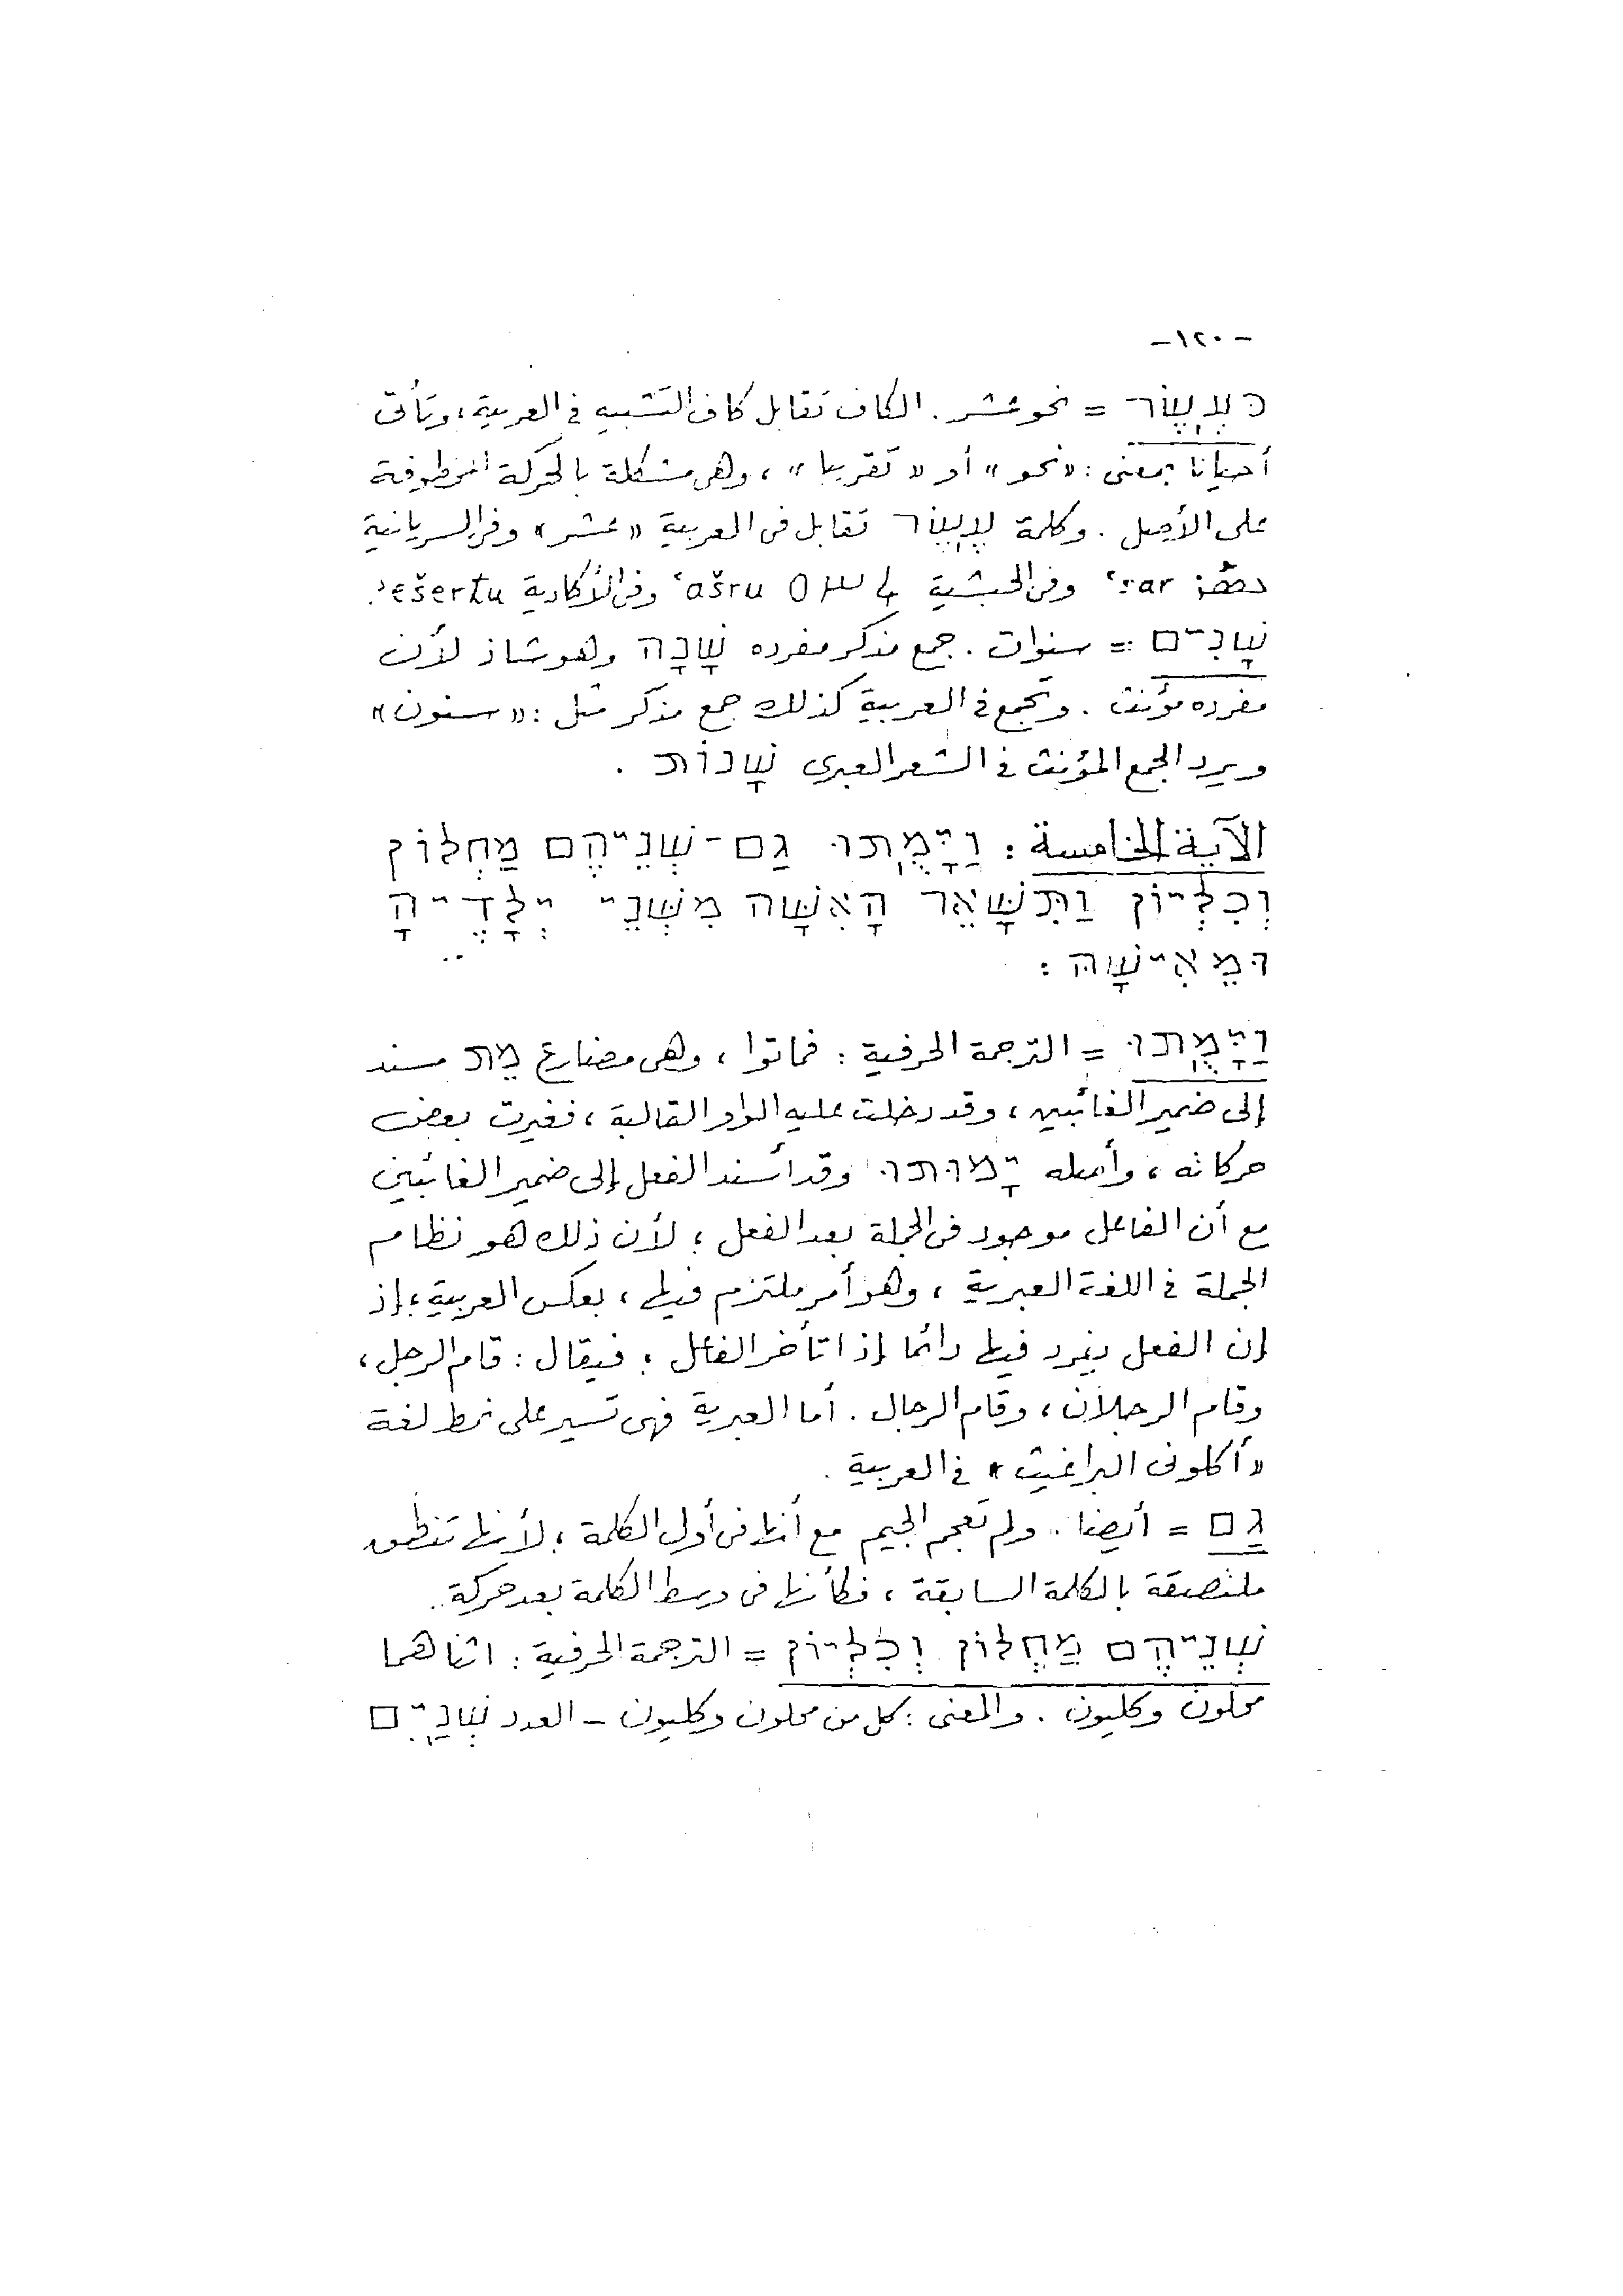 -١٢٠-
כְּעֶשֶׂר = نحو عشر. الكاف تقابل كاف التشبيه فى العربية، وتأتى
أحيانا بمعنى: «نحو» أو «تقريبا»، وهى مشكلة بالحركة المخطوفة
على الأصل. وكلمة עֶשֶׂר تقابل فى العربية «عشر» وفى السريانية
ʿsar وفى الحبشية ʿašru وفى الأكادية ʾešertu.
שָׁנִים = سنوات. جمع مذكر مفرده שָׁנָה وهو شاذ لأن
مفرده مؤنث. وتجمع فى العربية كذلك جمع مذكر مثل: «سنون»
ويرد الجمع المؤنث فى الشعر العبرى שָׁנוֹת.
الآية الخامسة: וַיָּמֻתוּ גַם-שְׁנֵיהֶם מַחְלוֹן
וְכִלְיוֹן וַתִּשָּׁאֵר הָאִשָּׁה מִשְּׁנֵי יְלָדֶיהָ
וּמֵאִישָׁהּ:
וַיָּמֻתוּ = الترجمة الحرفية: فماتوا، وهى مضارع מֵת مسند
إلى ضمير الغائبين، وقد دخلت عليه الواو القالبة، فغيرت بعض
حركاته، وأصله יָמוּתוּ وقد أسند الفعل إلى ضمير الغائبين
مع أن الفاعل موجود فى الجملة بعد الفعل؛ لأن ذلك هو نظام
الجملة فى اللغة العبرية، وهو أمر ملتزم فيها، بعكس العربية؛ إذ
إن الفعل يفرد فيها دائما إذا تأخر الفاعل؛ فيقال: قام الرجل،
وقام الرجلان، وقام الرجال. أما العبرية فهى تسير على نمط لغة
«أكلونى البراغيث» فى العربية.
גַם = أيضا. ولم تعجم الجيم مع أنها فى أول الكلمة؛ لأنها تنطق
ملتصقة بالكلمة السابقة، فكأنها فى وسط الكلمة بعد حركة.
שְׁנֵיהֶם מַחְלוֹן וְכִלְיוֹן = الترجمة الحرفية: اثناهما
محلون وكليون. والمعنى: كل من محلون وكليون - العدد שְׁנַיִם